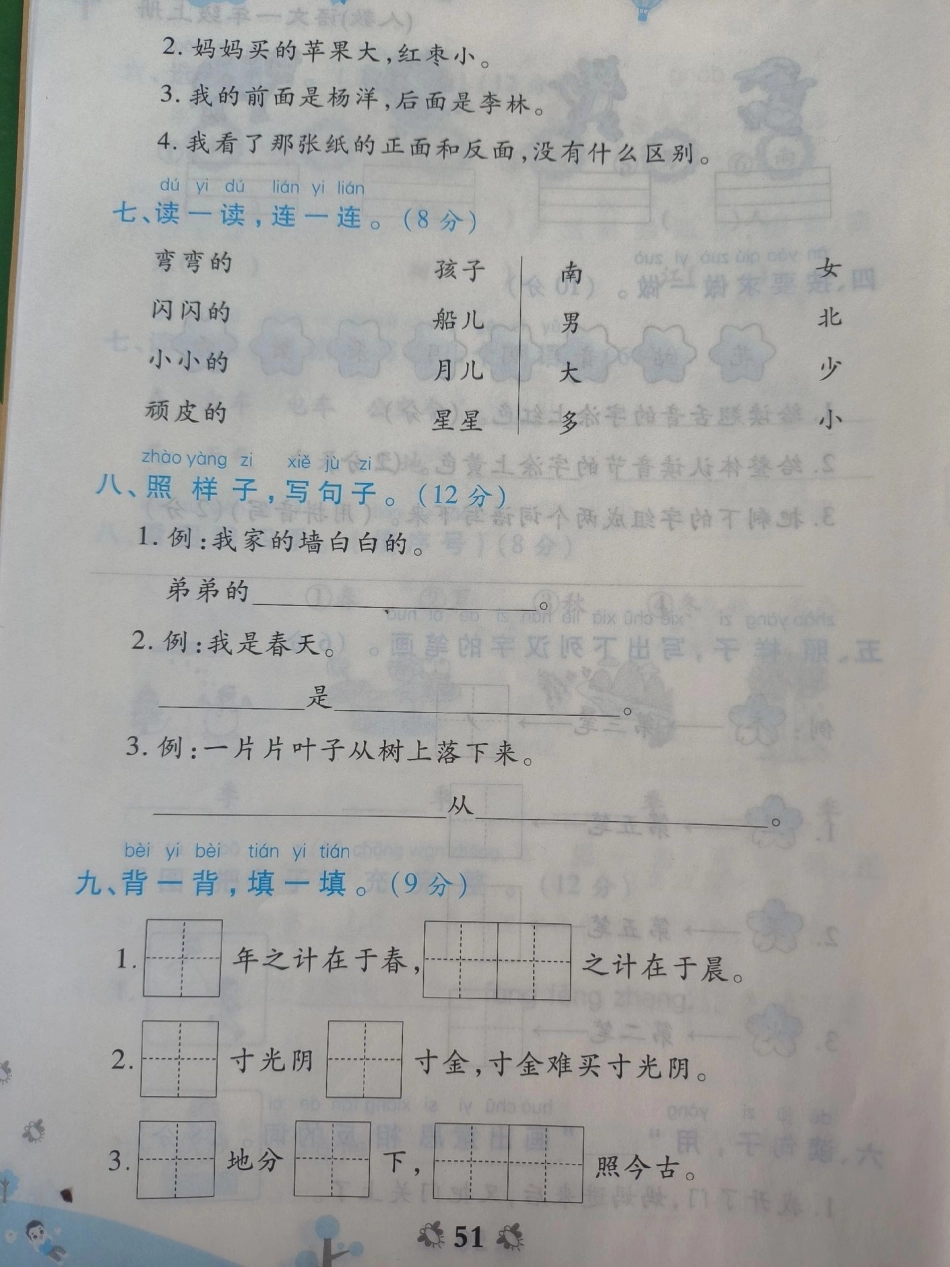 2. 妈妈买的苹果大,红枣小。
3. 我的前面是杨洋,后面是李林。
4. 我看了那张纸的正面和反面,没有什么区别。
dú yi dú lián yi lián
七、读一读,连一连。(8分)
弯弯的 孩子 南 女
闪闪的 船儿 男 北
小小的 月儿 大 少
顽皮的 星星 多 小
zhào yàng zi xiě jù zi
八、照样子,写句子。(12分)
1. 例:我家的墙白白的。
弟弟的____________。
2. 例:我是春天。
______是____________。
3. 例:一片片叶子从树上落下来。
____________从____________。
bèi yi bèi tián yi tián
九、背一背,填一填。(9分)
1. 年之计在于春, 之计在于晨。
2. 寸光阴 寸金,寸金难买寸光阴。
3. 地分 下, 照今古。
51